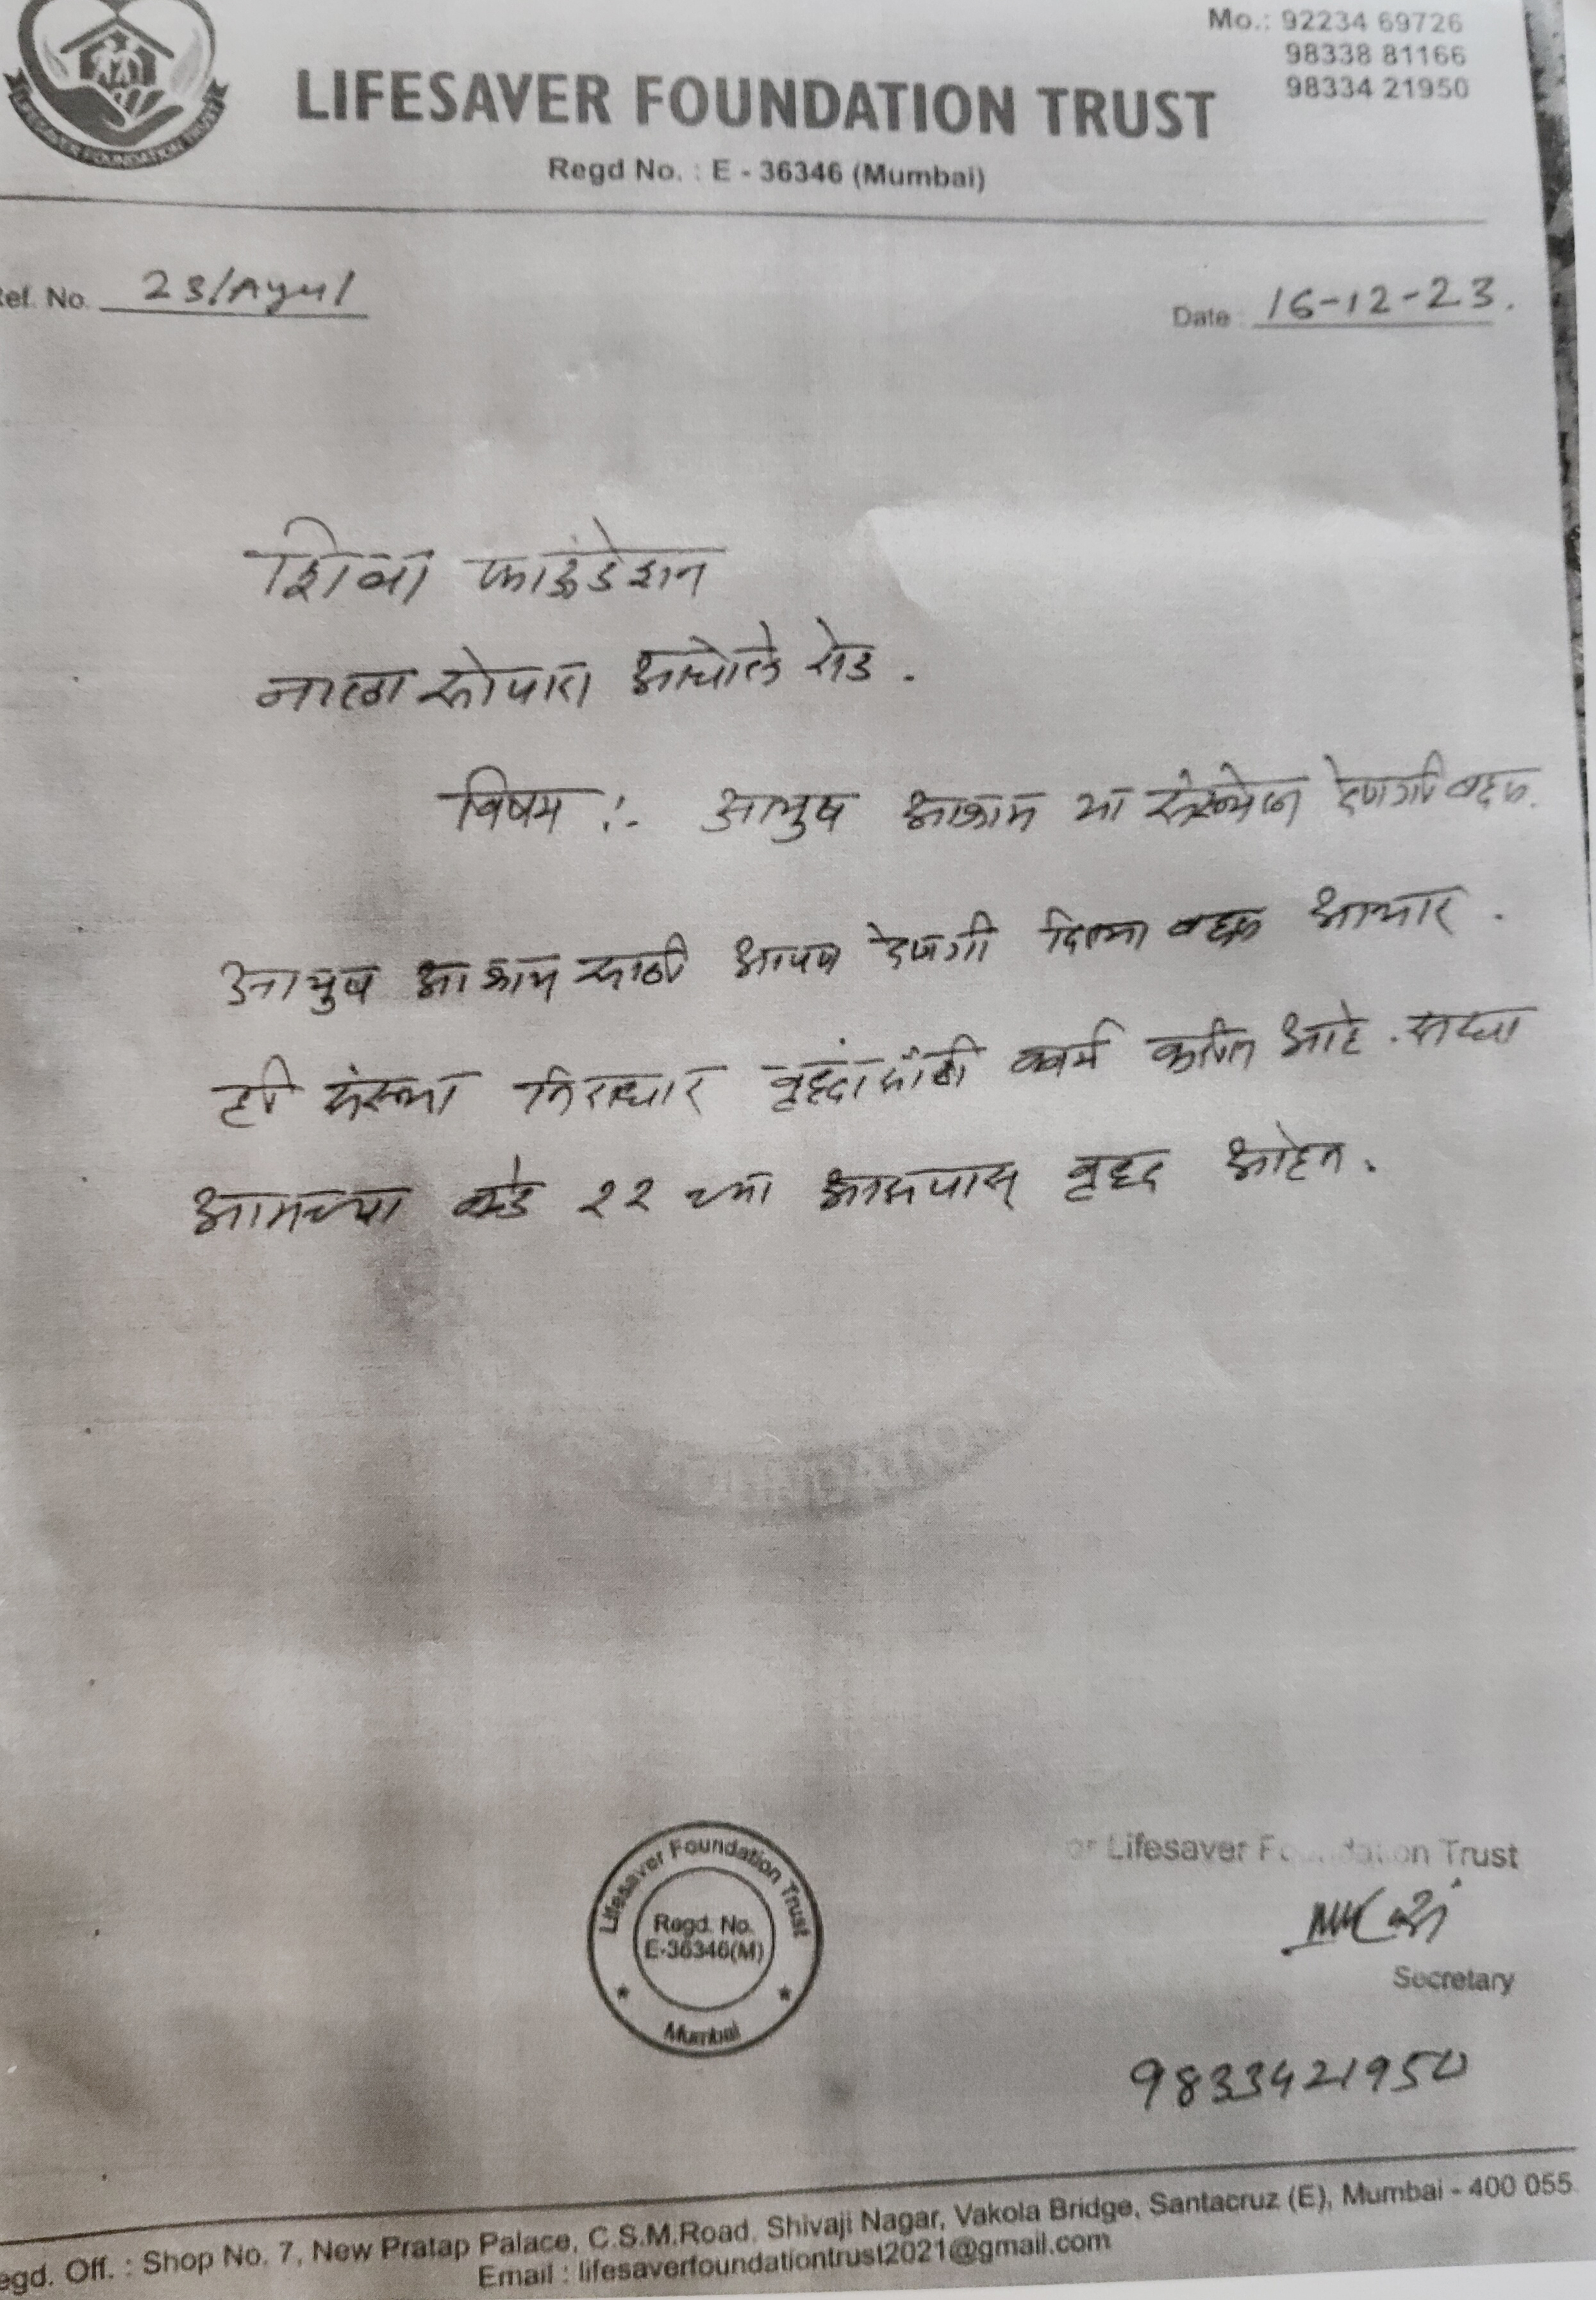 Mo.: 92234 69726
98338 81166
98334 21950
LIFESAVER FOUNDATION TRUST
LIFESAVER FOUNDATION TRUST
Regd No. : E - 36346 (Mumbai)
Ref. No. 23/Ayu/
Date : 16-12-23.
शिवा फाऊंडेशन
नाला सोपारा आचोले रोड .
विषय :- आयुष आश्रम या संस्थेला देणगी बद्दल.
आयुष आश्रम साठी आपण देणगी दिल्या बद्दल आभार .
ही संस्था निराधार वृद्दांसाठी कार्य करीत आहे . सध्या
आमच्या कडे २२ च्या आसपास वृद्द आहेत .
FOUNDATION
Lifesaver Foundation Trust
Regd. No.
E-36346(M)
Mumbai
or Lifesaver Foundation Trust
Secretary
9833421950
egd. Off. : Shop No. 7, New Pratap Palace, C.S.M.Road, Shivaji Nagar, Vakola Bridge, Santacruz (E), Mumbai - 400 055
Email : lifesaverfoundationtrust2021@gmail.com